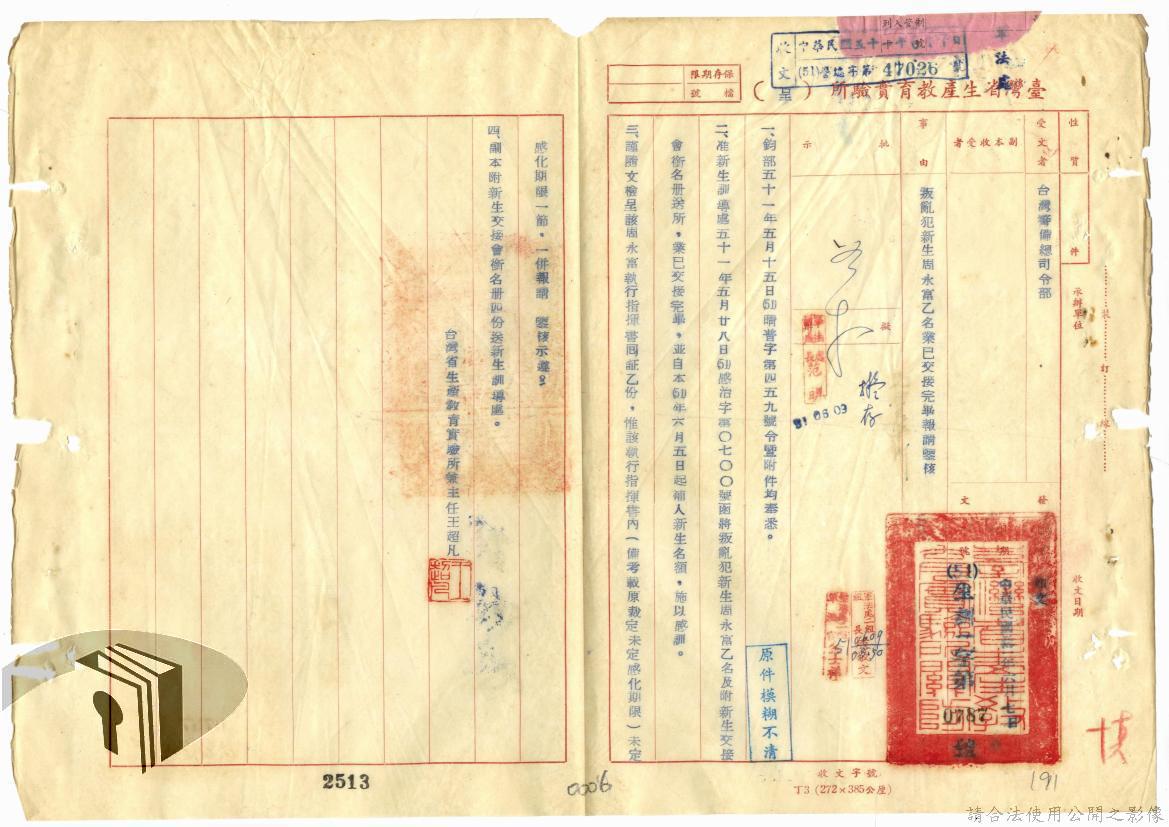 列入管制
軍法處
收文
中華民國五十
(51)督場字第47026號
保存期限
檔號
臺灣省生產教育實驗所（呈）
性質
件
受文者
台灣警備總司令部
副本收受者
事由
叛亂犯新生周永富乙名業已交接完畢報請鑒核
批示
擬
擬存
51 06 09
承辦單位
裝
訂
線
發文
收文日期
中華民國
(51)
0787
號
一、鈞部五十一年五月十五日(51)晴普字第四五九號令暨附件均奉悉。
二、准新生訓導處五十一年五月廿八日(51)感治字第〇七〇〇號函將叛亂犯新生周永富乙名及附新生交接
會銜名册送所，業已交接完畢，並自本(51)年六月五日起補入新生名額，施以感訓。
三、謹隨文檢呈該周永富執行指揮書回証乙份，惟該執行指揮書內（備考載原裁定未定感化期限）未定
感化期限一節，一併報請　鑒核示遵。
四、副本附新生交接會銜名册四份送新生訓導處。
台灣省生產教育實驗所兼主任王超凡
原件模糊不清
收文字號
丁3 (272×385公厘)
191
2513
0006
請合法使用公開之影像